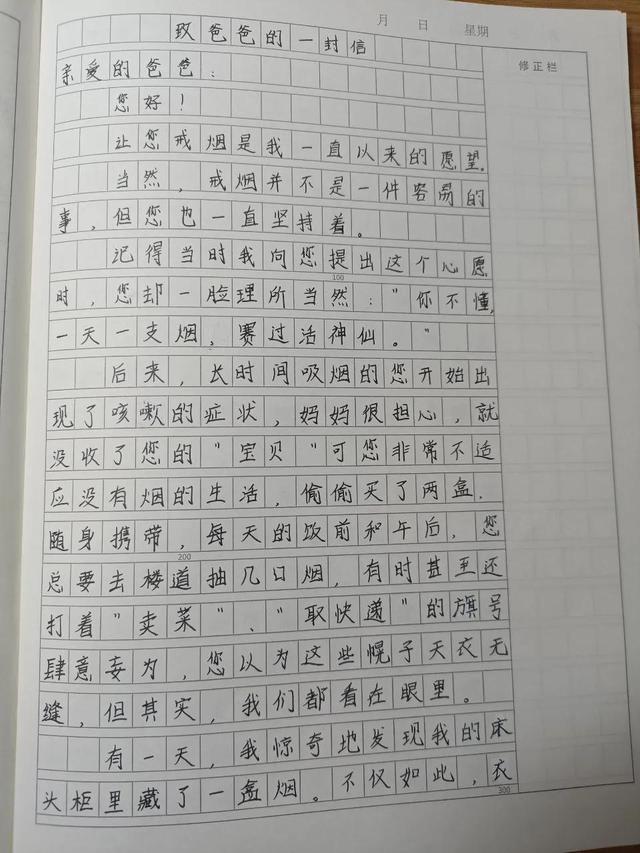 月 日 星期
致爸爸的一封信
修正栏
亲爱的爸爸：
您好！
让您戒烟是我一直以来的愿望。
当然，戒烟并不是一件容易的
事，但您也一直坚持着。
记得当时我向您提出这个心愿
100
时，您却一脸理所当然："你不懂，
一天一支烟，赛过活神仙。"
后来，长时间吸烟的您开始出
现了咳嗽的症状，妈妈很担心，就
没收了您的"宝贝"可您非常不适
应没有烟的生活，偷偷买了两盒．
随身携带，每天的饭前和午后，您
200
总要去楼道抽几口烟，有时甚至还
打着"卖菜"、"取快递"的旗号
肆意妄为，您以为这些幌子天衣无
缝，但其实，我们都看在眼里。
有一天，我惊奇地发现我的床
头柜里藏了一盒烟。不仅如此，衣
300